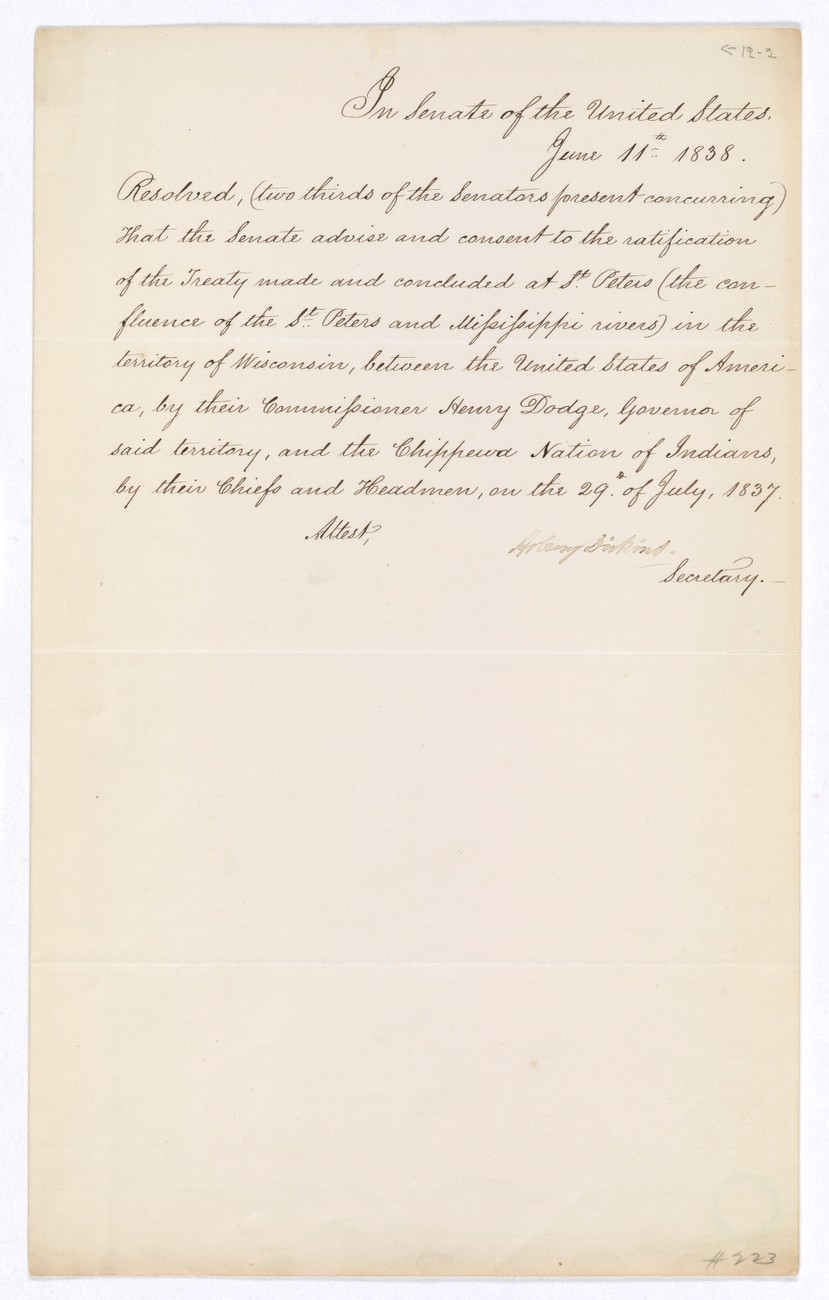 < 12-2
In Senate of the United States.
June 11th 1838.
Resolved, (two thirds of the Senators present concurring)
That the Senate advise and consent to the ratification
of the Treaty made and concluded at St. Peters (the con-
fluence of the St. Peters and Missisippi rivers) in the
territory of Wisconsin, between the United States of Ameri-
ca, by their Commissioner Henry Dodge, Governor of
said territory, and the Chippewa Nation of Indians,
by their Chiefs and Headmen, on the 29th of July, 1837.
Attest,
Asbury Dickins.
Secretary.
# 223